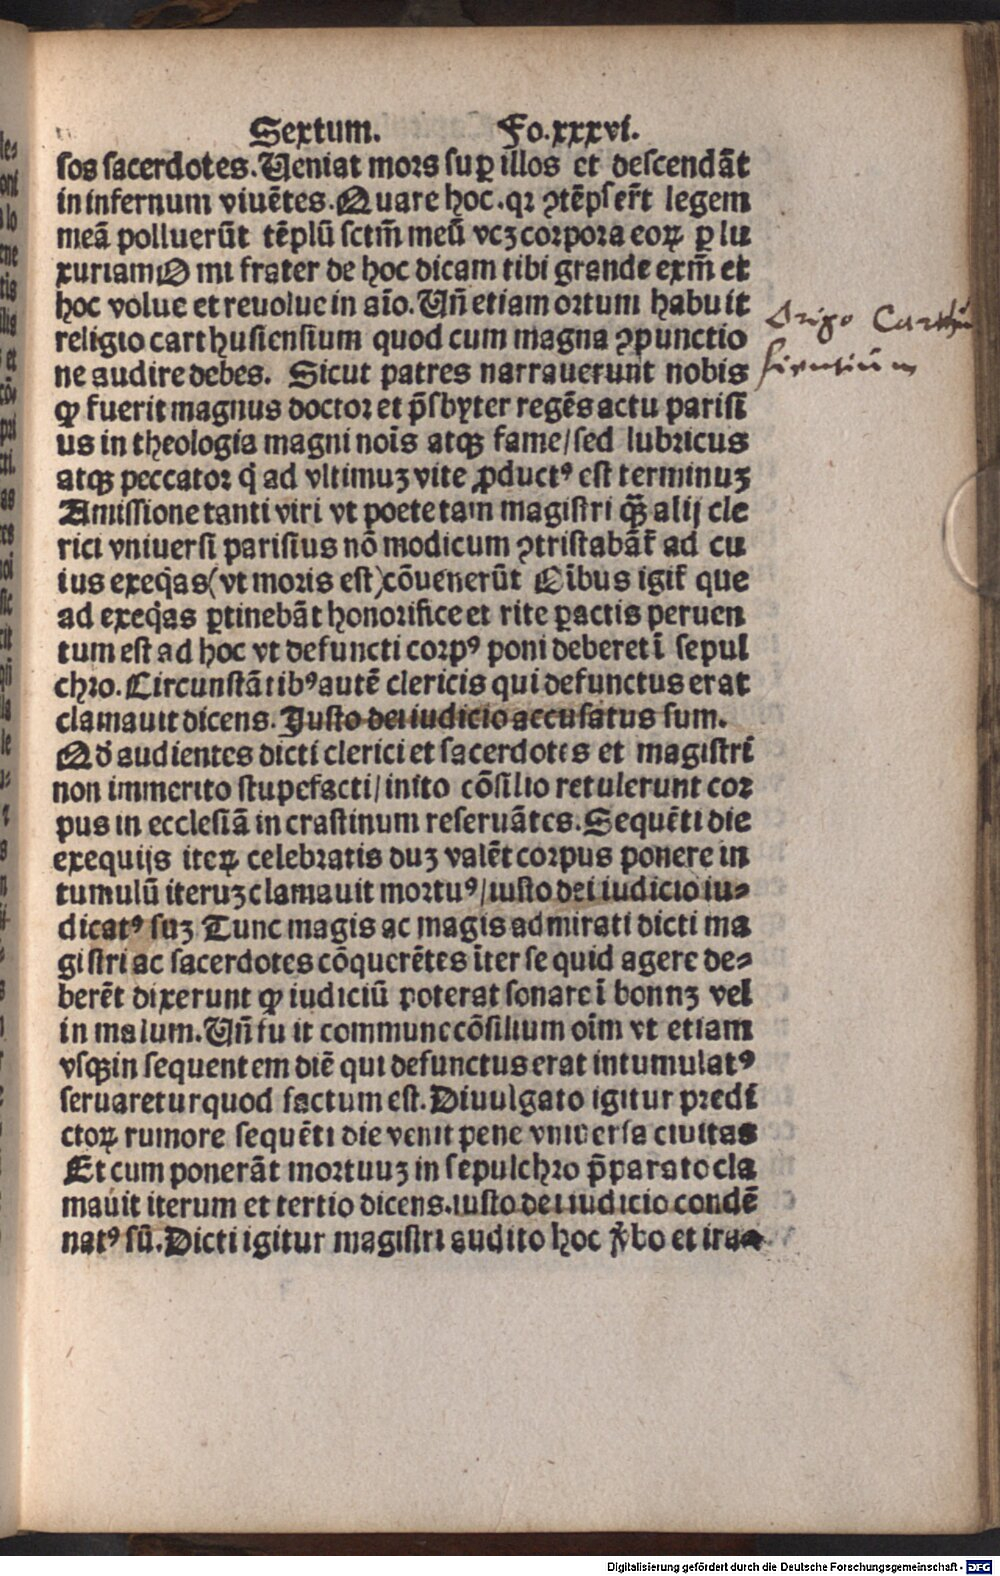 Sextum. Fo.xxxvi.
sos sacerdotes.Ueniat mors sup̲ illos et descendāt
in infernum viuētes.Quare hoc.qꝛ ꝯtēpserūt legem
meā polluerūt tēplū sctm̄ meū vcꝫ corpora eoꝝ ꝑ lu
xuriam O mi frater de hoc dicam tibi grande exm̄ et
hoc volue et reuolue in aīo.Un̄ etiam ortum habuit
religio carthusiensium quod cum magna ꝯpunctio
ne audire debes. Sicut patres narrauerunt nobis
ꝙ fuerit magnus doctor et p̄sbyter regēs actu parisi
us in theologia magni nois̄ atqꝫ fame/sed lubricus
atqꝫ peccator q̇ ad vltimuꝫ vite ꝓductꝰ est terminuꝫ
Amissione tanti viri vt poete tam magistri qꝫ̄ alij cle
rici vniuersi parisius nō modicum ꝯtristabāt̄ ad cu
ius exeq̇as(vt moris est)cōuenerūt Oib̄us igit̄ que
ad exeq̇as ꝑtinebāt honorifice et rite ꝑactis peruen
tum est ad hoc vt defuncti corpꝰ poni deberet ī sepul
chro.Circunstātibꝰ autē clericis qui defunctus erat
clamauit dicens.Justo dei iudicio accusatus sum.
Qd̓ audientes dicti clerici et sacerdotes et magistri
non immerito stupefacti/inito cōsilio retulerunt cor
pus in ecclesiā in crastinum reseruātes.Sequēti die
exequijs iteꝝ celebratis duꝫ valēt corpus ponere in
tumulū iteruꝫ clamauit mortuꝰ/iusto dei iudicio iu⸗
dicatꝰ suꝫ Tunc magis ac magis admirati dicti ma
gistri ac sacerdotes cōquerētes īter se quid agere de⸗
berēt dixerunt ꝙ iudiciū poterat sonare ī bonuꝫ vel
in malum.Un̄ fu it commune cōsilium oīm vt etiam
vsqꝫ in sequentem diē qui defunctus erat intumulatꝰ
seruaretur quod factum est.Diuulgato igitur predi
ctoꝝ rumore sequēti die venit pene vniuersa ciuitas
Et cum ponerāt mortuuꝫ in sepulchro p̄parato cla
mauit iterum et tertio dicens.iusto dei iudicio condē
natꝰ sū.Dicti igitur magistri audito hoc v̓bo et
Origo Carthu
siensium
Digitalisierung gefördert durch die Deutsche Forschungsgemeinschaft - DFG